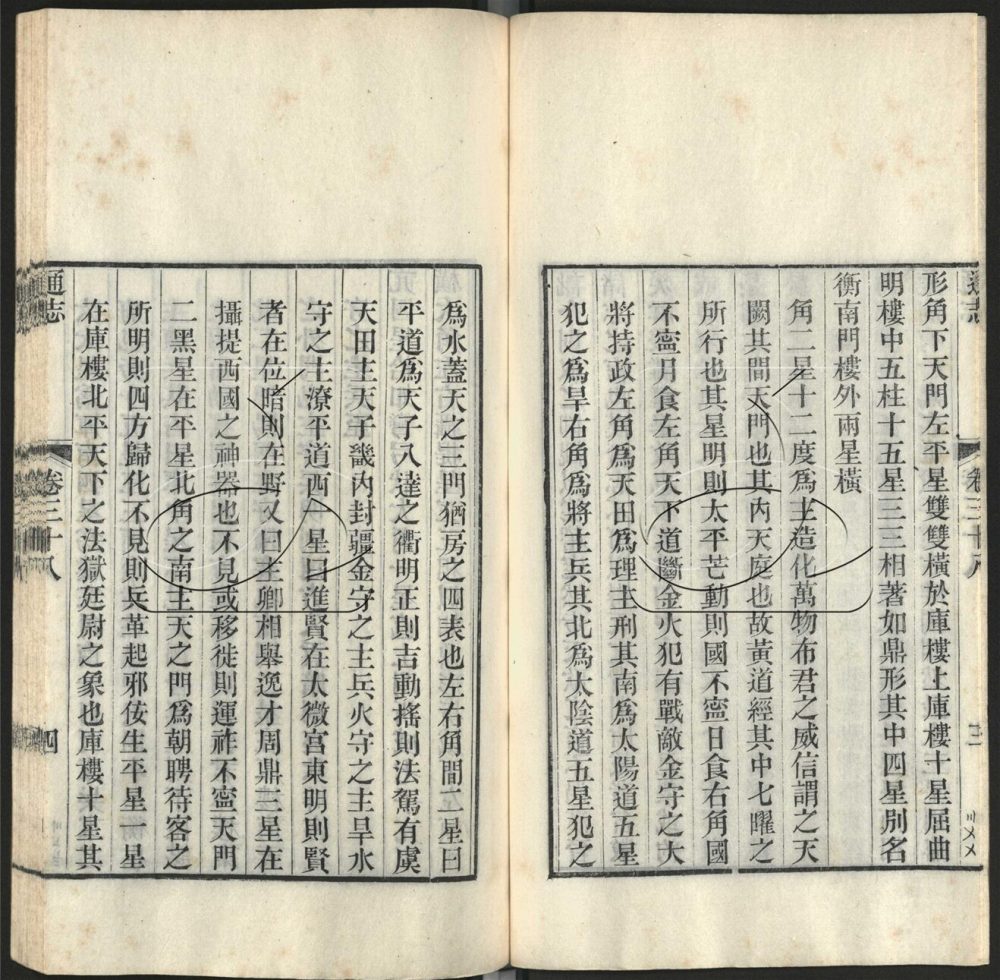 形角下天門左平星雙雙橫於庫樓上庫樓十星屈曲
明樓中五柱十五星三三相著如鼎形其中四星別名
衡南門樓外兩星橫
角二星十二度爲主造化萬物布君之威信謂之天
闕其間天門也其內天庭也故黃道經其中七曜之
所行也其星明則太平芒動則國不寍日食右角國
不寍月食左角天下道斷金火犯有戰敵金守之大
將持政左角爲天田爲理主刑其南爲太陽道五星
犯之爲旱右角爲將主兵其北爲太陰道五星犯之
爲水蓋天之三門猶房之四表也左右角間二星曰
平道爲天子八達之衢明正則吉動搖則法駕有虞
天田主天子畿內封疆金守之主兵火守之主旱水
守之主潦平道西一星曰進賢在太微宮東明則賢
者在位暗則在野又曰主卿相舉逸才周鼎三星在
攝提西國之神器也不見或移徙則運祚不寍天門
二黑星在平星北角之南主天之門爲朝聘待客之
所明則四方歸化不見則兵革起邪佞生平星一星
在庫樓北平天下之法獄廷尉之象也庫樓十星其
通志
卷三十八
四